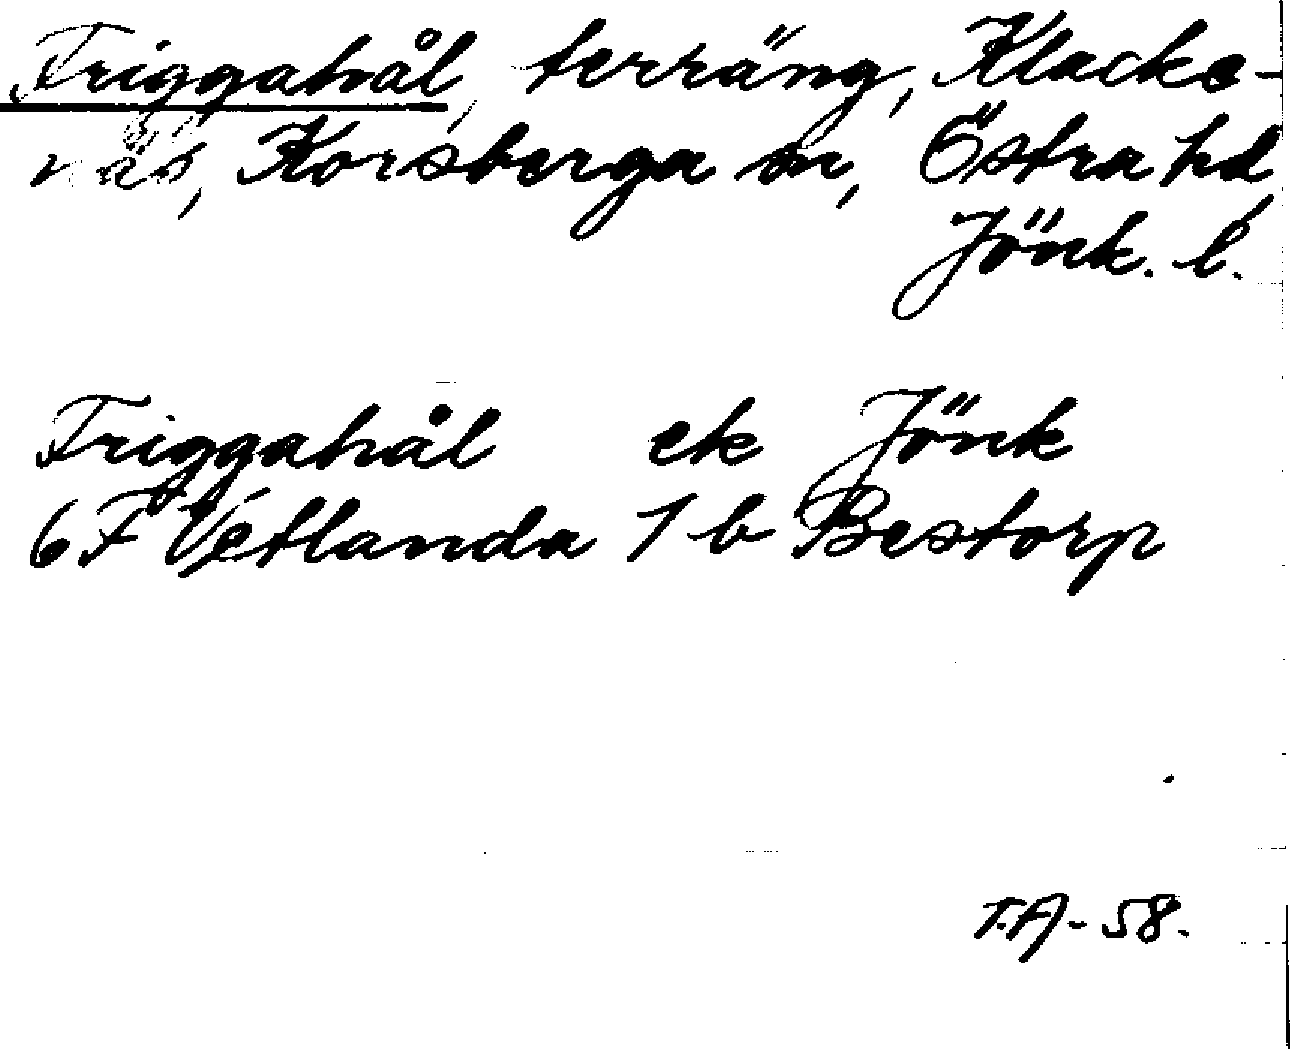 Friggahål, terräng, Klacke-
näs, Korsberga sn, Östra hd,
Jönk. l.
Friggahål ek Jönk
6F Vetlanda 1 b Bestorp
T.A-58.